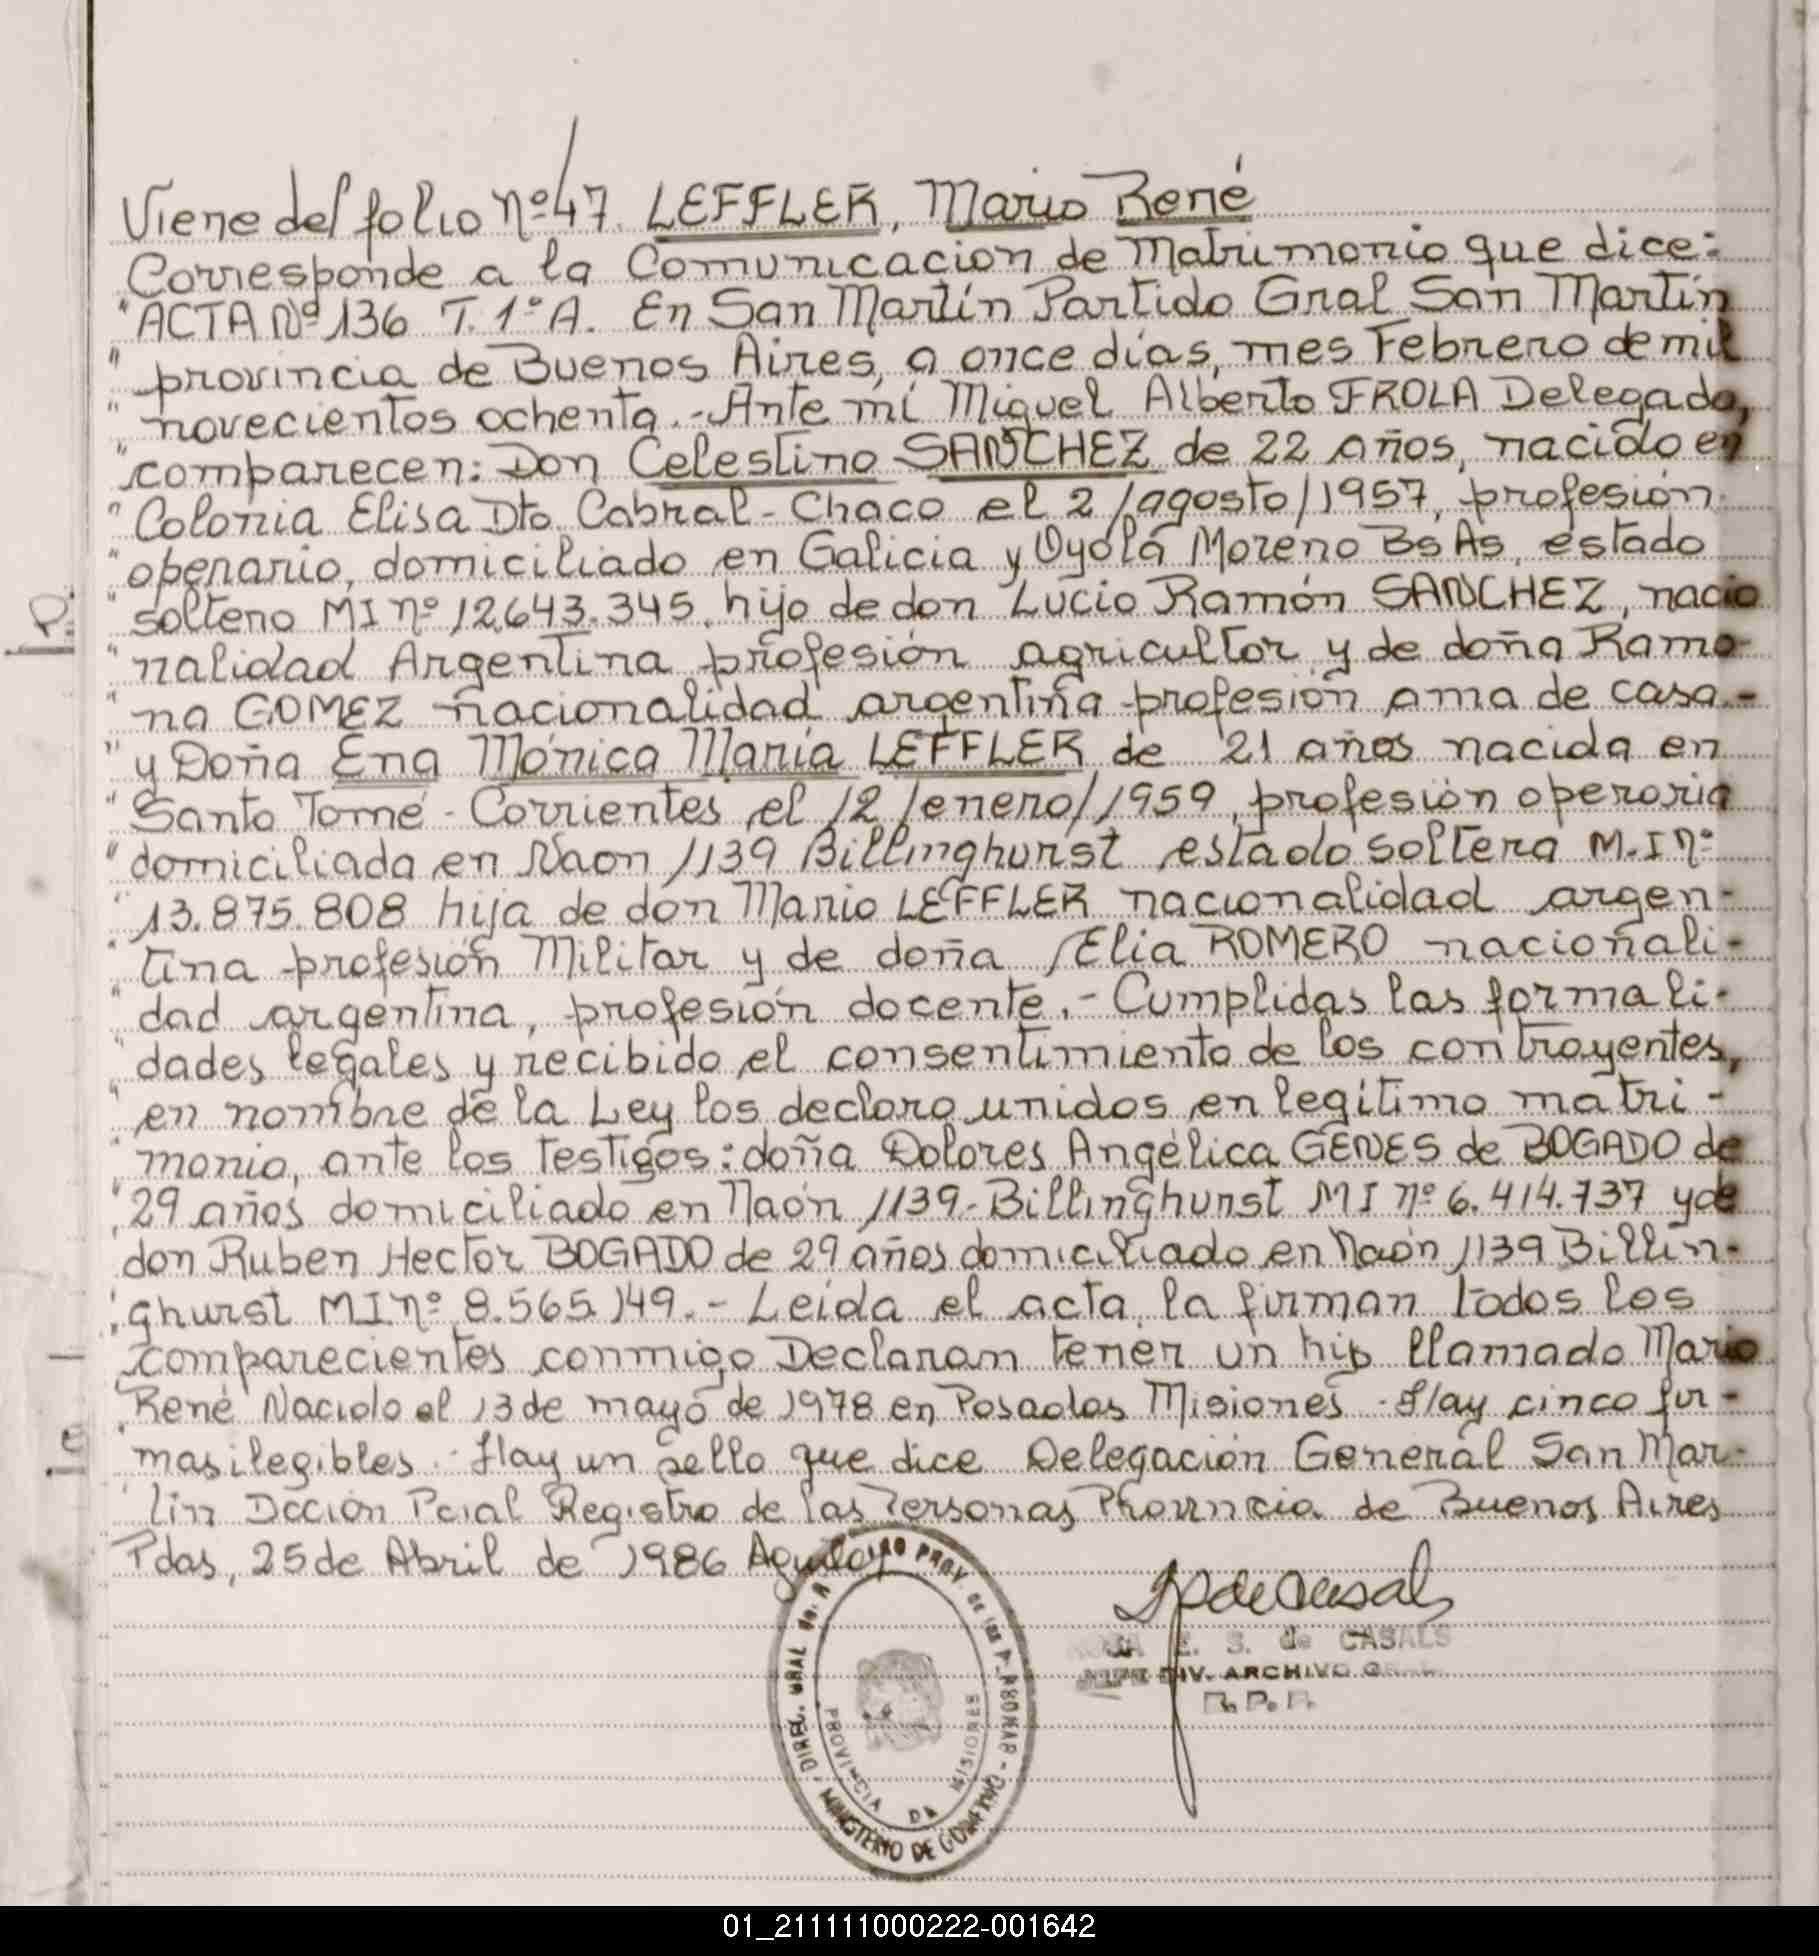 Viene del folio nº 47. LEFFLER, Mario René
Corresponde a la Comunicacion de Matrimonio que dice:
"ACTA Nº 136 T. 1º A. En San Martín Partido Gral San Martín
" provincia de Buenos Aires, a once días, mes Febrero de mil
" novecientos ochenta.- Ante mí Miguel Alberto FROLA Delegado,
" comparecen: Don Celestino SANCHEZ de 22 años, nacido en
" Colonia Elisa Dto Cabral - Chaco el 2/agosto/1957, profesión
" operario, domiciliado en Galicia y Oyola Moreno Bs As, estado
" soltero MI nº 12.643.345. hijo de don Lucio Ramón SANCHEZ, nacio
" nalidad Argentina profesión agricultor y de doña Ramo-
" na GOMEZ nacionalidad argentina profesión ama de casa.-
" y Doña Ena Mónica María LEFFLER de 21 años nacida en
" Santo Tomé - Corrientes el 12/enero/1959, profesión operaria
" domiciliada en Naon 1139 Billinghurst estado soltera M.I nº
" 13.875.808 hija de don Mario LEFFLER nacionalidad argen-
" tina profesión Militar y de doña Elia ROMERO nacionali-
" dad argentina, profesión docente.- Cumplidas las formali-
" dades legales y recibido el consentimiento de los contrayentes,
" en nombre de la Ley los declaro unidos en legítimo matri-
" monio, ante los testigos: doña Dolores Angélica GENES de BOGADO de
" 29 años domiciliado en Naón 1139.- Billinghurst MI nº 6.414.737 y de
don Ruben Hector BOGADO de 29 años domiciliado en Naón 1139 Billin-
" ghurst MI nº 8.565.149.- Leída el acta, la firman todos los
" comparecientes conmigo Declaran tener un hijo llamado Mario
" René Nacido el 13 de mayo de 1978 en Posadas Misiones - Hay cinco fir-
" mas ilegibles. - Hay un sello que dice Delegación General San Mar-
" tin Dcción Pcial Registro de las Personas Provincia de Buenos Aires
Pdas, 25 de Abril de 1986
E. S. de CASALS
JEFE DIV. ARCHIVO GRAL.
R. P. P.
PROVINCIA DE MISIONES
MINISTERIO DE GOBIERNO
01_211111000222-001642